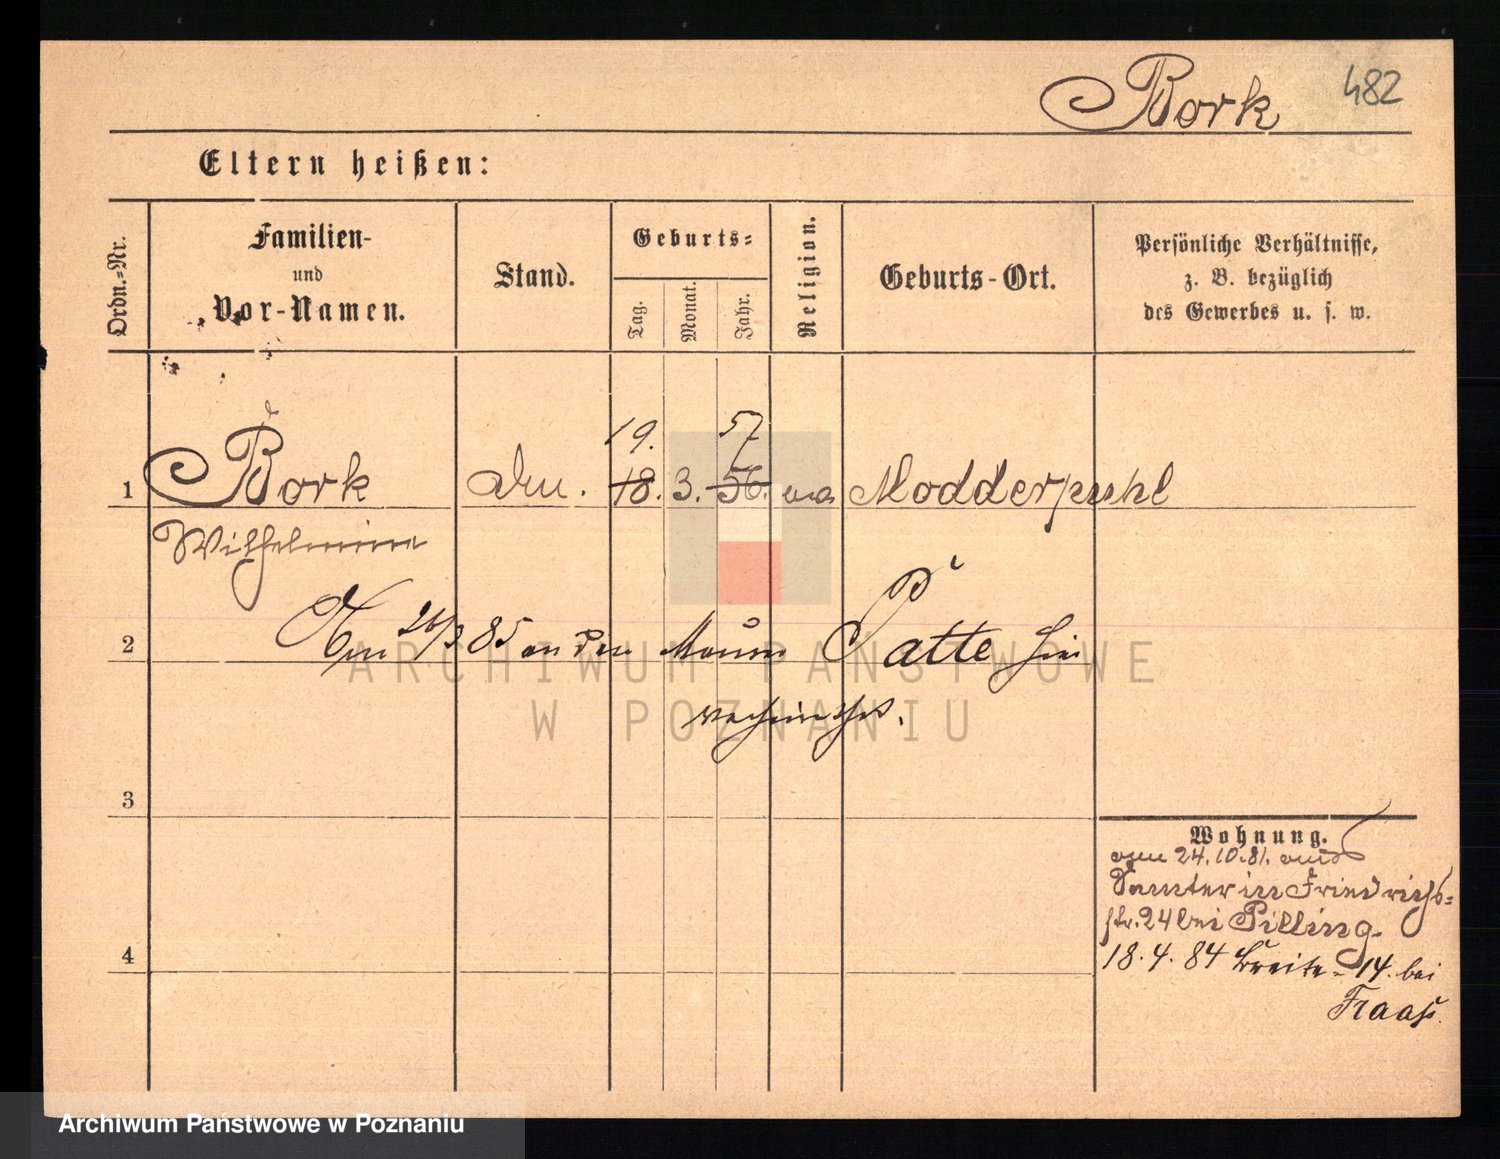 Bork 482
Eltern heißen:
Ordn.-Nr.
Familien-
und
Vor-Namen.
Stand.
Geburts-
Tag.
Monat.
Jahr.
Religion.
Geburts-Ort.
Persönliche Verhältnisse,
z. B. bezüglich
des Gewerbes u. s. w.
19. 57
1 Bork 18. 3. 56. Modderpuhl
Wilhelmine
2 26/3 85 an den Maurer Patte hier
verheirathet.
ARCHIWUM PAŃSTWOWE
W POZNANIU
3
Wohnung.
24.10.81. aus
Samter in Friedrichs-
str. 24 bei Pilling.
4 18. 4. 84 Breite- 14. bei
Fraaß.
Archiwum Państwowe w Poznaniu